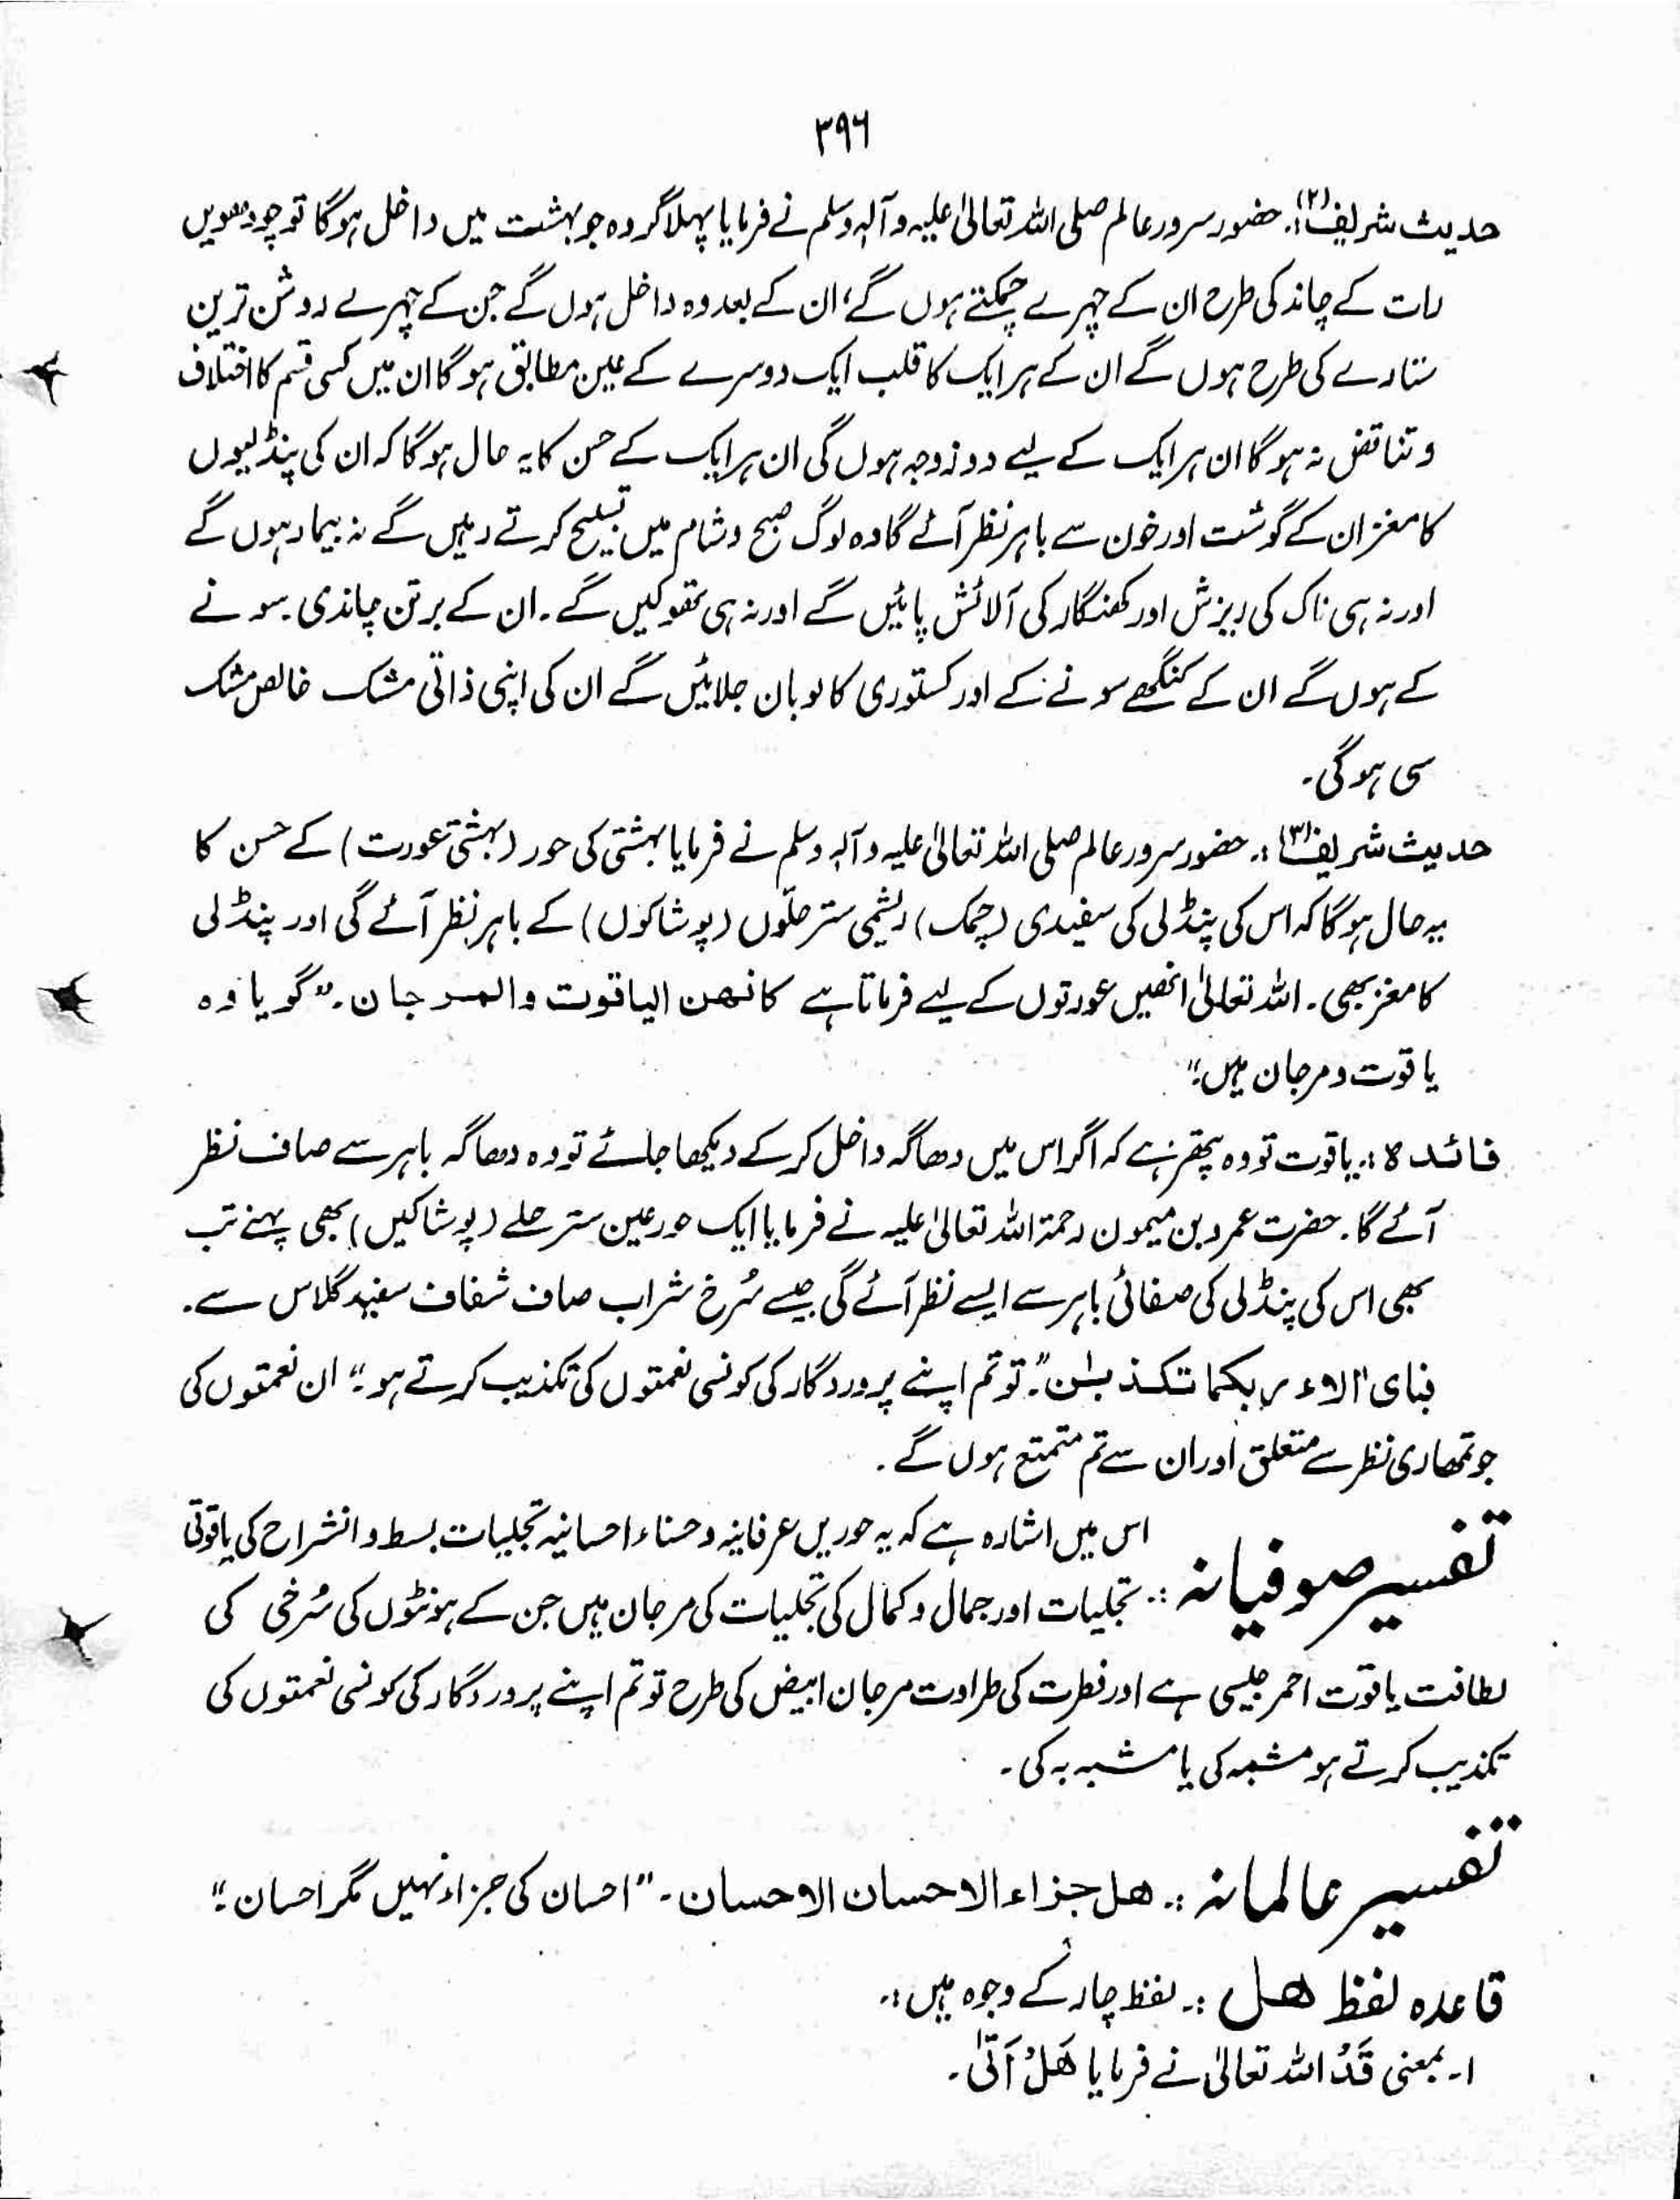 ۳۹۶
حدیث شریف (۲) :۔ حضور سرور عالم صلی اللہ تعالیٰ علیہ وآلہ وسلم نے فرمایا پہلا گروہ جو بہشت میں داخل ہوگا تو چودھویں
رات کے چاند کی طرح ان کے چہرے چمکتے ہوں گے، ان کے بعد وہ داخل ہوں گے جن کے چہرے روشن ترین
ستارے کی طرح ہوں گے ان کے ہر ایک کا قلب ایک دوسرے کے عین مطابق ہوگا ان میں کسی قسم کا اختلاف
و تناقض نہ ہوگا ان ہر ایک کے لیے دو زوجہ ہوں گی ان ہر ایک کے حسن کا یہ حال ہوگا کہ ان کی پنڈلیوں
کا مغز ان کے گوشت اور خون سے باہر نظر آئے گا وہ لوگ صبح و شام میں تسبیح کرتے رہیں گے نہ بیمار ہوں گے
اور نہ ہی ناک کی ریزش اور کھنگار کی آلائش پائیں گے اور نہ ہی تھوکیں گے۔ ان کے برتن چاندی سونے
کے ہوں گے ان کے کنگھے سونے کے اور کستوری کا لوبان جلائیں گے ان کی اپنی ذاتی مشک خالص مشک
سی ہوگی۔
حدیث شریف (۳) :۔ حضور سرور عالم صلی اللہ تعالیٰ علیہ وآلہ وسلم نے فرمایا بہشتی کی حور (بہشتی عورت) کے حسن کا
یہ حال ہوگا کہ اس کی پنڈلی کی سفیدی (چمک) ریشمی ستر حلّوں (پوشاکوں) کے باہر نظر آئے گی اور پنڈلی
کا مغز بھی۔ اللہ تعالیٰ انھیں عورتوں کے لیے فرماتا ہے کانھن الیاقوت والمرجان۔ "گویا وہ
یاقوت و مرجان ہیں۔"
فائدہ :۔ یاقوت تو وہ پتھر ہے کہ اگر اس میں دھاگہ داخل کر کے دیکھا جائے تو وہ دھاگہ باہر سے صاف نظر
آئے گا۔ حضرت عمرو بن میمون رحمۃ اللہ تعالیٰ علیہ نے فرمایا ایک حور عین ستر حلے (پوشاکیں) بھی پہنے تب
بھی اس کی پنڈلی کی صفائی باہر سے ایسے نظر آئے گی جیسے سُرخ شراب صاف شفاف سفید گلاس سے۔
فبای اٰلاء ربکما تکذبٰن "۔ تو تم اپنے پروردگار کی کونسی نعمتوں کی تکذیب کرتے ہو۔" ان نعمتوں کی
جو تمھاری نظر سے متعلق اور ان سے تم متمتع ہوں گے۔
تفسیر صوفیانہ :۔ اس میں اشارہ ہے کہ یہ حوریں عرفانیہ و حسناء احسانیہ تجلیات بسط و انشراح کی یاقوتی
تجلیات اور جمال و کمال کی تجلیات کی مرجان ہیں جن کے ہونٹوں کی سُرخی کی
لطافت یاقوت احمر جیسی ہے اور فطرت کی طراوت مرجان ابیض کی طرح تو تم اپنے پروردگار کی کونسی نعمتوں کی
تکذیب کرتے ہو مشبہ کی یا مشبہ بہ کی۔
تفسیر عالمانہ :۔ ھل جزاء الاحسان الا حسان۔ "احسان کی جزاء نہیں مگر احسان۔"
قاعدہ لفظ ھل :۔ لفظ چار کے وجوہ ہیں :۔
۱۔ بمعنی قَدْ اللہ تعالیٰ نے فرمایا ھَلْ اَتیٰ۔